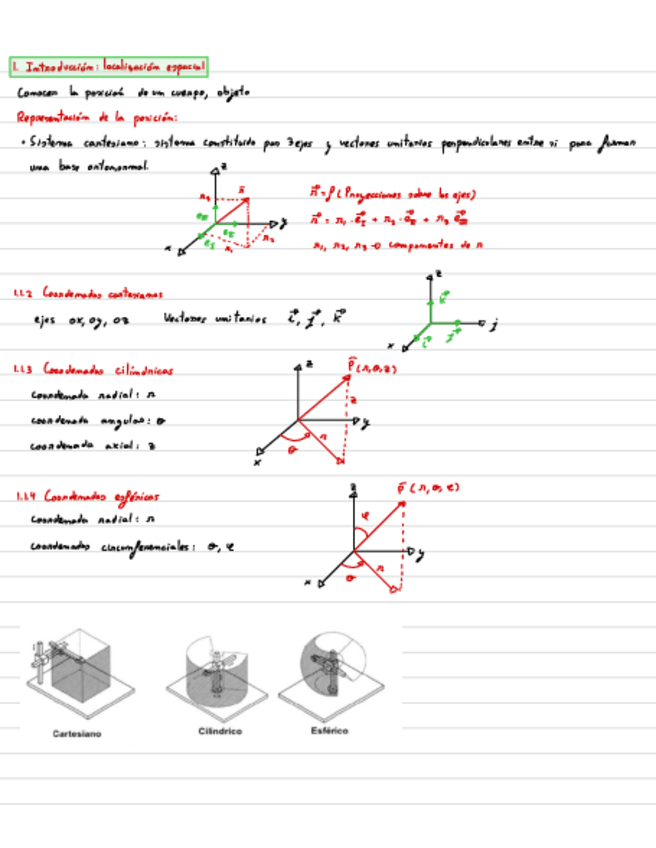 1. Introducción: localización espacial
Conocer la posición de un cuerpo, objeto
Representación de la posición:
• Sistema cartesiano: sistema constituido por 3 ejes y vectores unitarios perpendiculares entre si para formar
una base ortonormal.
z
r₃
r
y
x
r₁
r₂
r = f (Proyecciones sobre los ejes)
r = r₁ · e_I + r₂ · e_II + r₃ e_III
r₁, r₂, r₃ → componentes de r
1.1.2 Coordenadas cartesianas
ejes ox, oy, oz Vectores unitarios i, j, k
z
k
j
x
i
j
1.1.3 Coordenadas cilíndricas
coordenada radial: r
coordenada angular: θ
coordenada axial: z
z
P (r, θ, z)
z
y
r
θ
x
1.1.4 Coordenadas esféricas
coordenada radial: r
coordenadas circunferenciales: θ, φ
z
P (r, θ, φ)
φ
y
x
θ
r
Cartesiano
Cilíndrico
Esférico